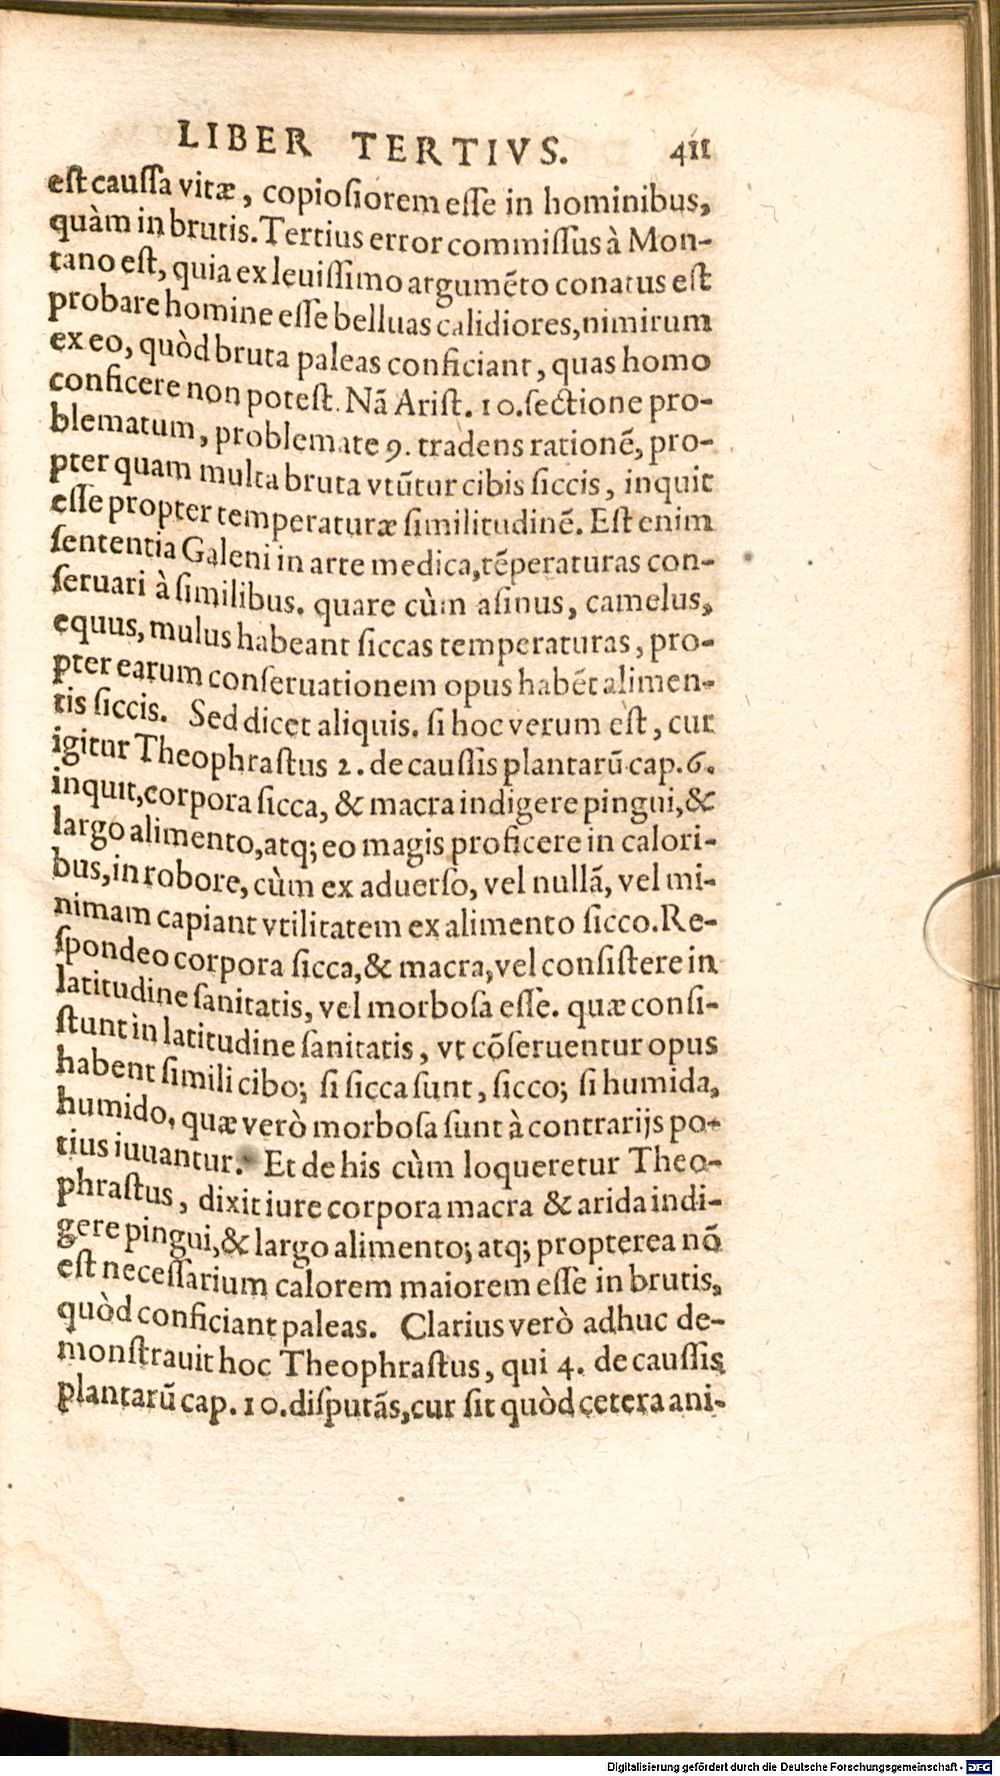 LIBER TERTIVS. 411
eſt cauſſa vitæ, copioſiorem eſſe in hominibus,
quàm in brutis. Tertius error commiſſus à Mon-
tano eſt, quia ex leuiſſimo argumẽto conatus eſt
probare homine eſſe belluas calidiores, nimirum
ex eo, quòd bruta paleas conficiant, quas homo
conficere non poteſt. Nã Ariſt. 10. ſectione pro-
blematum, problemate 9. tradens rationẽ, pro-
pter quam multa bruta vtũtur cibis ſiccis, inquit
eſſe propter temperaturæ ſimilitudinẽ. Eſt enim
ſententia Galeni in arte medica, tẽperaturas con-
ſeruari à ſimilibus. quare cùm aſinus, camelus,
equus, mulus habeant ſiccas temperaturas, pro-
pter earum conſeruationem opus habẽt alimen-
tis ſiccis. Sed dicet aliquis. ſi hoc verum eſt, cur
igitur Theophraſtus 2. de cauſſis plantarũ cap. 6.
inquit, corpora ſicca, & macra indigere pingui, &
largo alimento, atq; eo magis proficere in calori-
bus, in robore, cùm ex aduerſo, vel nullã, vel mi-
nimam capiant vtilitatem ex alimento ſicco. Re-
ſpondeo corpora ſicca, & macra, vel conſiſtere in
latitudine ſanitatis, vel morboſa eſſe. quæ conſi-
ſtunt in latitudine ſanitatis, vt cõſeruentur opus
habent ſimili cibo; ſi ſicca ſunt, ſicco; ſi humida,
humido, quæ verò morboſa ſunt à contrarijs po-
tius iuuantur. Et de his cùm loqueretur Theo-
phraſtus, dixit iure corpora macra & arida indi-
gere pingui, & largo alimento; atq; propterea nõ
eſt neceſſarium calorem maiorem eſſe in brutis,
quòd conficiant paleas. Clarius verò adhuc de-
monſtrauit hoc Theophraſtus, qui 4. de cauſſis
plantarũ cap. 10. diſputãs, cur ſit quòd cetera ani-
Digitalisierung gefördert durch die Deutsche Forschungsgemeinschaft - DFG